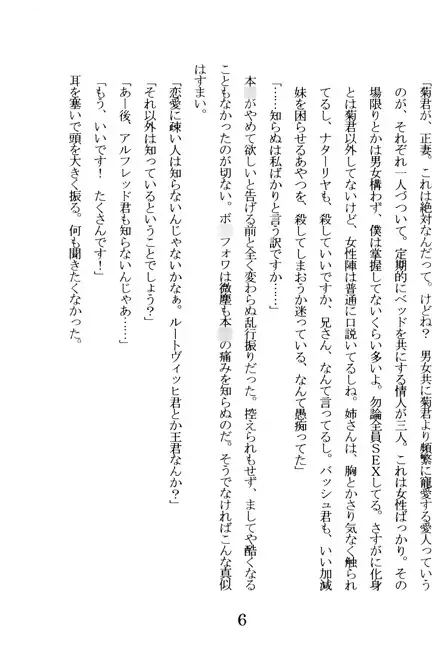 「菊君が、正妻。これは絶対なんだって。けどね？　男女共に菊君より頻繁に寵愛する愛人っていう
のが、それぞれ一人づついて、定期的にベッドを共にする情人が三人。これは女性ばっかり。その
場限りとかは男女構わず、僕は掌握してないくらい多いよ。勿論全員ＳＥＸしてる。さすがに化身
とは菊君以外してないけど、女性陣は普通に口説いてるしね。姉さんは、胸とかさり気なく触られ
てるし、ナターリヤも、殺していいですか、兄さん、なんて言ってるし。バッシュ君も、いい加減
妹を困らせるあやつを、殺してしまおうか迷っている、なんて愚痴ってた」
「……知らぬは私ばかりと言う訳ですか……」
本　がやめて欲しいと告げる前と全く変わらぬ乱行振りだった。控えられもせず、ましてや酷くなる
こともなかったのが切ない。ボ　フォワは微塵も本　の痛みを知らぬのだ。そうでなければこんな真似
はすまい。
「恋愛に疎い人は知らないんじゃないかなぁ。ルートヴィッヒ君とか王君なんか？」
「それ以外は知っているということでしょう？」
「あー後、アルフレッド君も知らないんじゃあ……」
「もう、いいです！　たくさんです！」
耳を塞いで頭を大きく振る。何も聞きたくなかった。
6